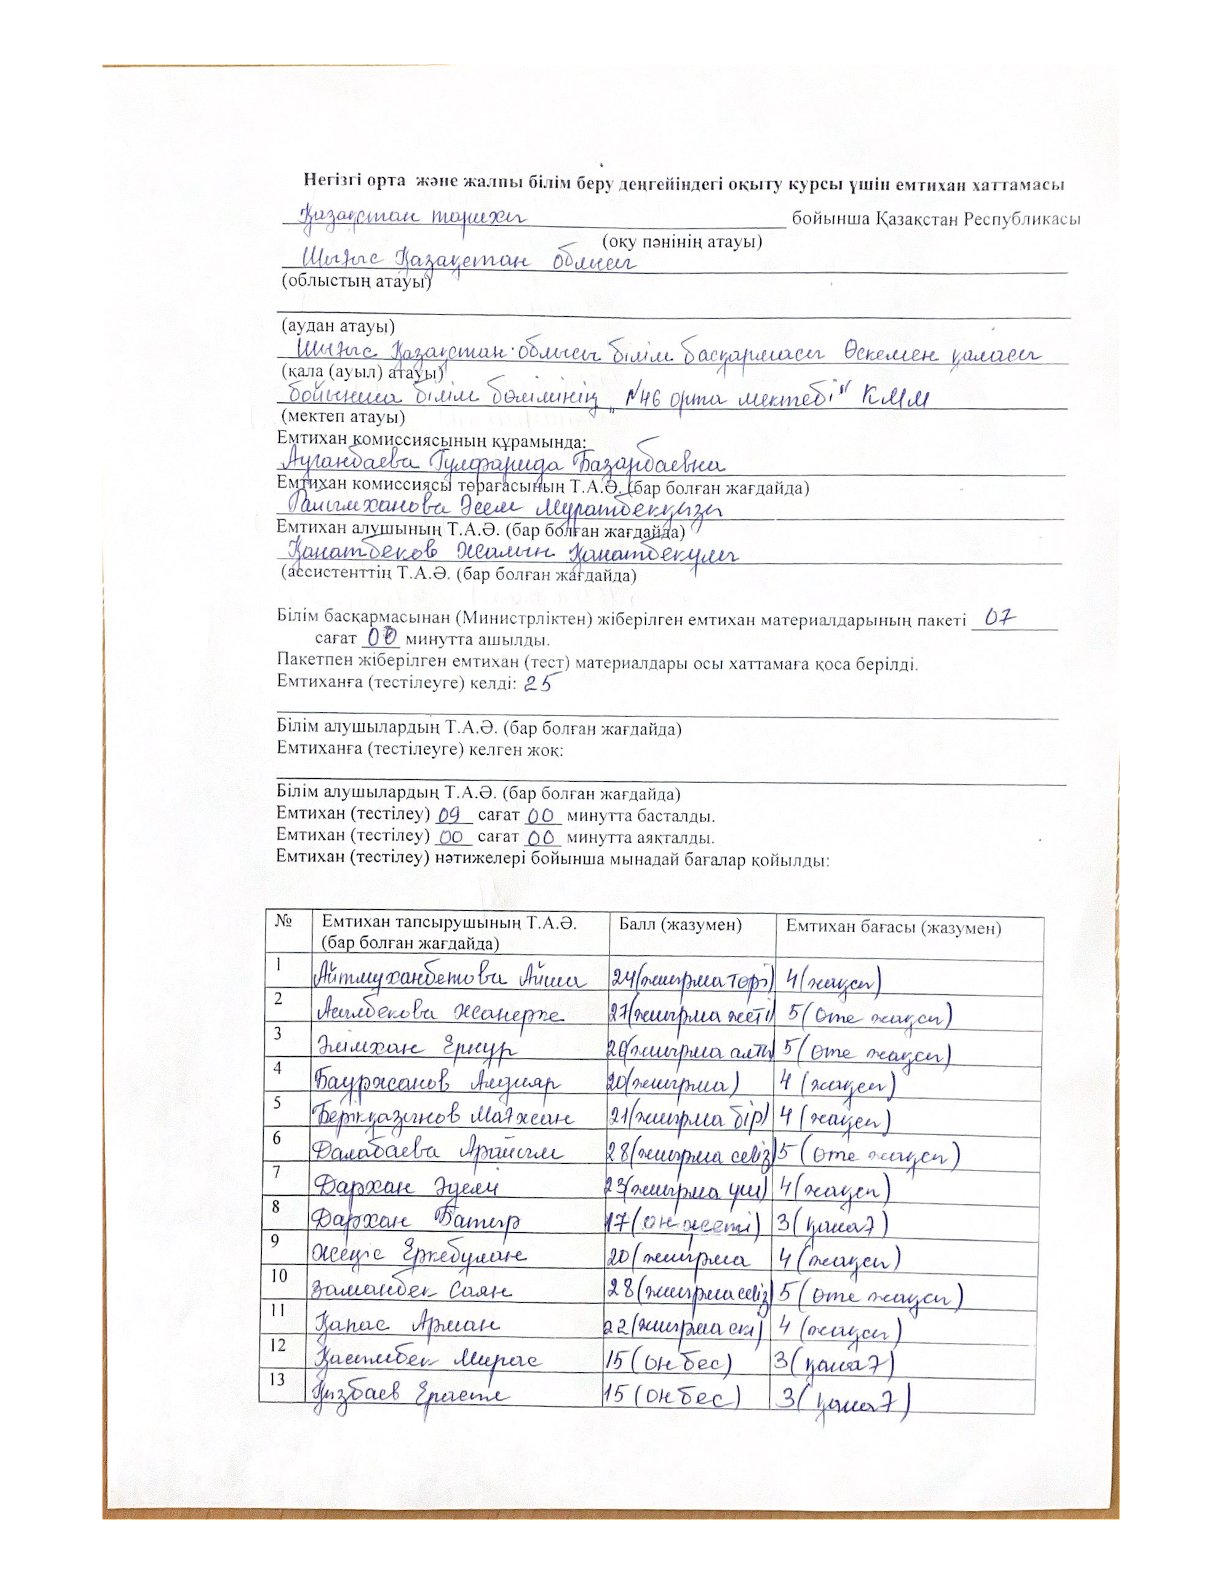 Негізгі орта және жалпы білім беру деңгейіндегі оқыту курсы үшін емтихан хаттамасы
Қазақстан тарихы бойынша Қазақстан Республикасы
(оқу пәнінің атауы)
Шығыс Қазақстан облысы
(облыстың атауы)
(аудан атауы)
Шығыс Қазақстан облысы білім басқармасы Өскемен қаласы
(қала (ауыл) атауы)
бойынша білім бөлімінің "№46 орта мектебі" КММ
(мектеп атауы)
Емтихан комиссиясының құрамында:
Ауганбаева Гулфарида Базарбаевна
Емтихан комиссиясы төрағасының Т.А.Ә. (бар болған жағдайда)
Рахымханова Әсем Мұратбекқызы
Емтихан алушының Т.А.Ә. (бар болған жағдайда)
Қанатбеков Жалын Қанатбекұлы
(ассистенттің Т.А.Ә. (бар болған жағдайда)
Білім басқармасынан (Министрліктен) жіберілген емтихан материалдарының пакеті 07
сағат 00 минутта ашылды.
Пакетпен жіберілген емтихан (тест) материалдары осы хаттамаға қоса берілді.
Емтиханға (тестілеуге) келді: 25
Білім алушылардың Т.А.Ә. (бар болған жағдайда)
Емтиханға (тестілеуге) келген жоқ:
Білім алушылардың Т.А.Ә. (бар болған жағдайда)
Емтихан (тестілеу) 09 сағат 00 минутта басталды.
Емтихан (тестілеу) 00 сағат 00 минутта аяқталды.
Емтихан (тестілеу) нәтижелері бойынша мынадай бағалар қойылды:
№ Емтихан тапсырушының Т.А.Ә. (бар болған жағдайда) Балл (жазумен) Емтихан бағасы (жазумен)
1 Айтмуханбетова Айша 24(жиырма төрт) 4(жақсы)
2 Асылбекова Жанерке 27(жиырма жеті) 5(өте жақсы)
3 Әлімхан Ернұр 26(жиырма алты) 5(өте жақсы)
4 Бауржанов Алдияр 20(жиырма) 4(жақсы)
5 Берікқазынов Мағжан 21(жиырма бір) 4(жақсы)
6 Далабаева Арайлым 28(жиырма сегіз) 5(өте жақсы)
7 Дархан Әделі 23(жиырма үш) 4(жақсы)
8 Дархан Батыр 17(он жеті) 3(қанағ)
9 Жеңіс Еркебұлан 20(жиырма 4(жақсы)
10 Заманбек Саян 28(жиырма сегіз) 5(өте жақсы)
11 Қапас Арман 22(жиырма екі) 4(жақсы)
12 Қасымбек Мирас 15(он бес) 3(қанағ)
13 Қизбаев Ерасыл 15(он бес) 3(қанағ)